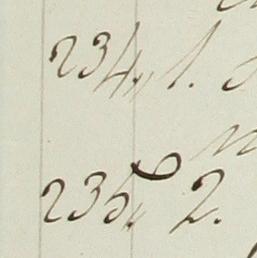 234,, 1.
235,, 2.